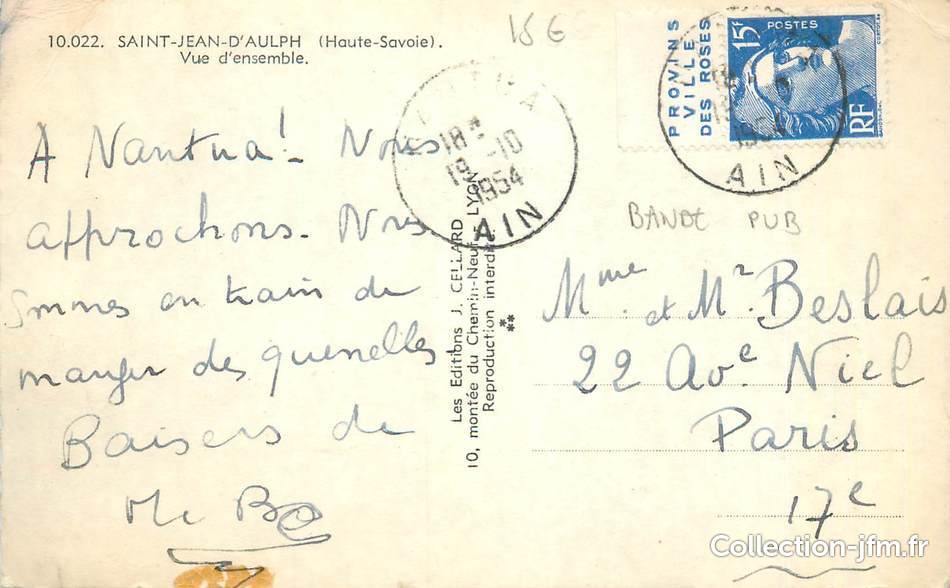 10.022. SAINT-JEAN-D'AULPH (Haute-Savoie).
Vue d'ensemble.
15 €
A Nantua! Nous
approchons. Nous
sommes en train de
manger des quenelles
Baisers de
18 H
19 -10
1954
AIN
Les Editions J. CELLARD
10, montée du Chemin-Neuf - LYON
Reproduction interdite
PROVINS
VILLE
DES ROSES
15F
POSTES
RF
1954
AIN
BANDE PUB
Mme et Mr Beslais
22 Ave Niel
Paris
17e
Collection-jfm.fr